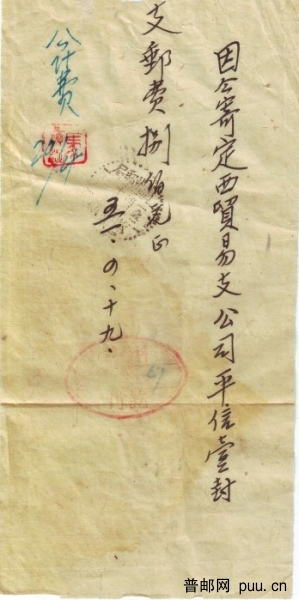 因公寄定西貿易支公司平信壹封
支郵費捌佰元正
五一.四.十九.
公什費
普邮网 puu.cn